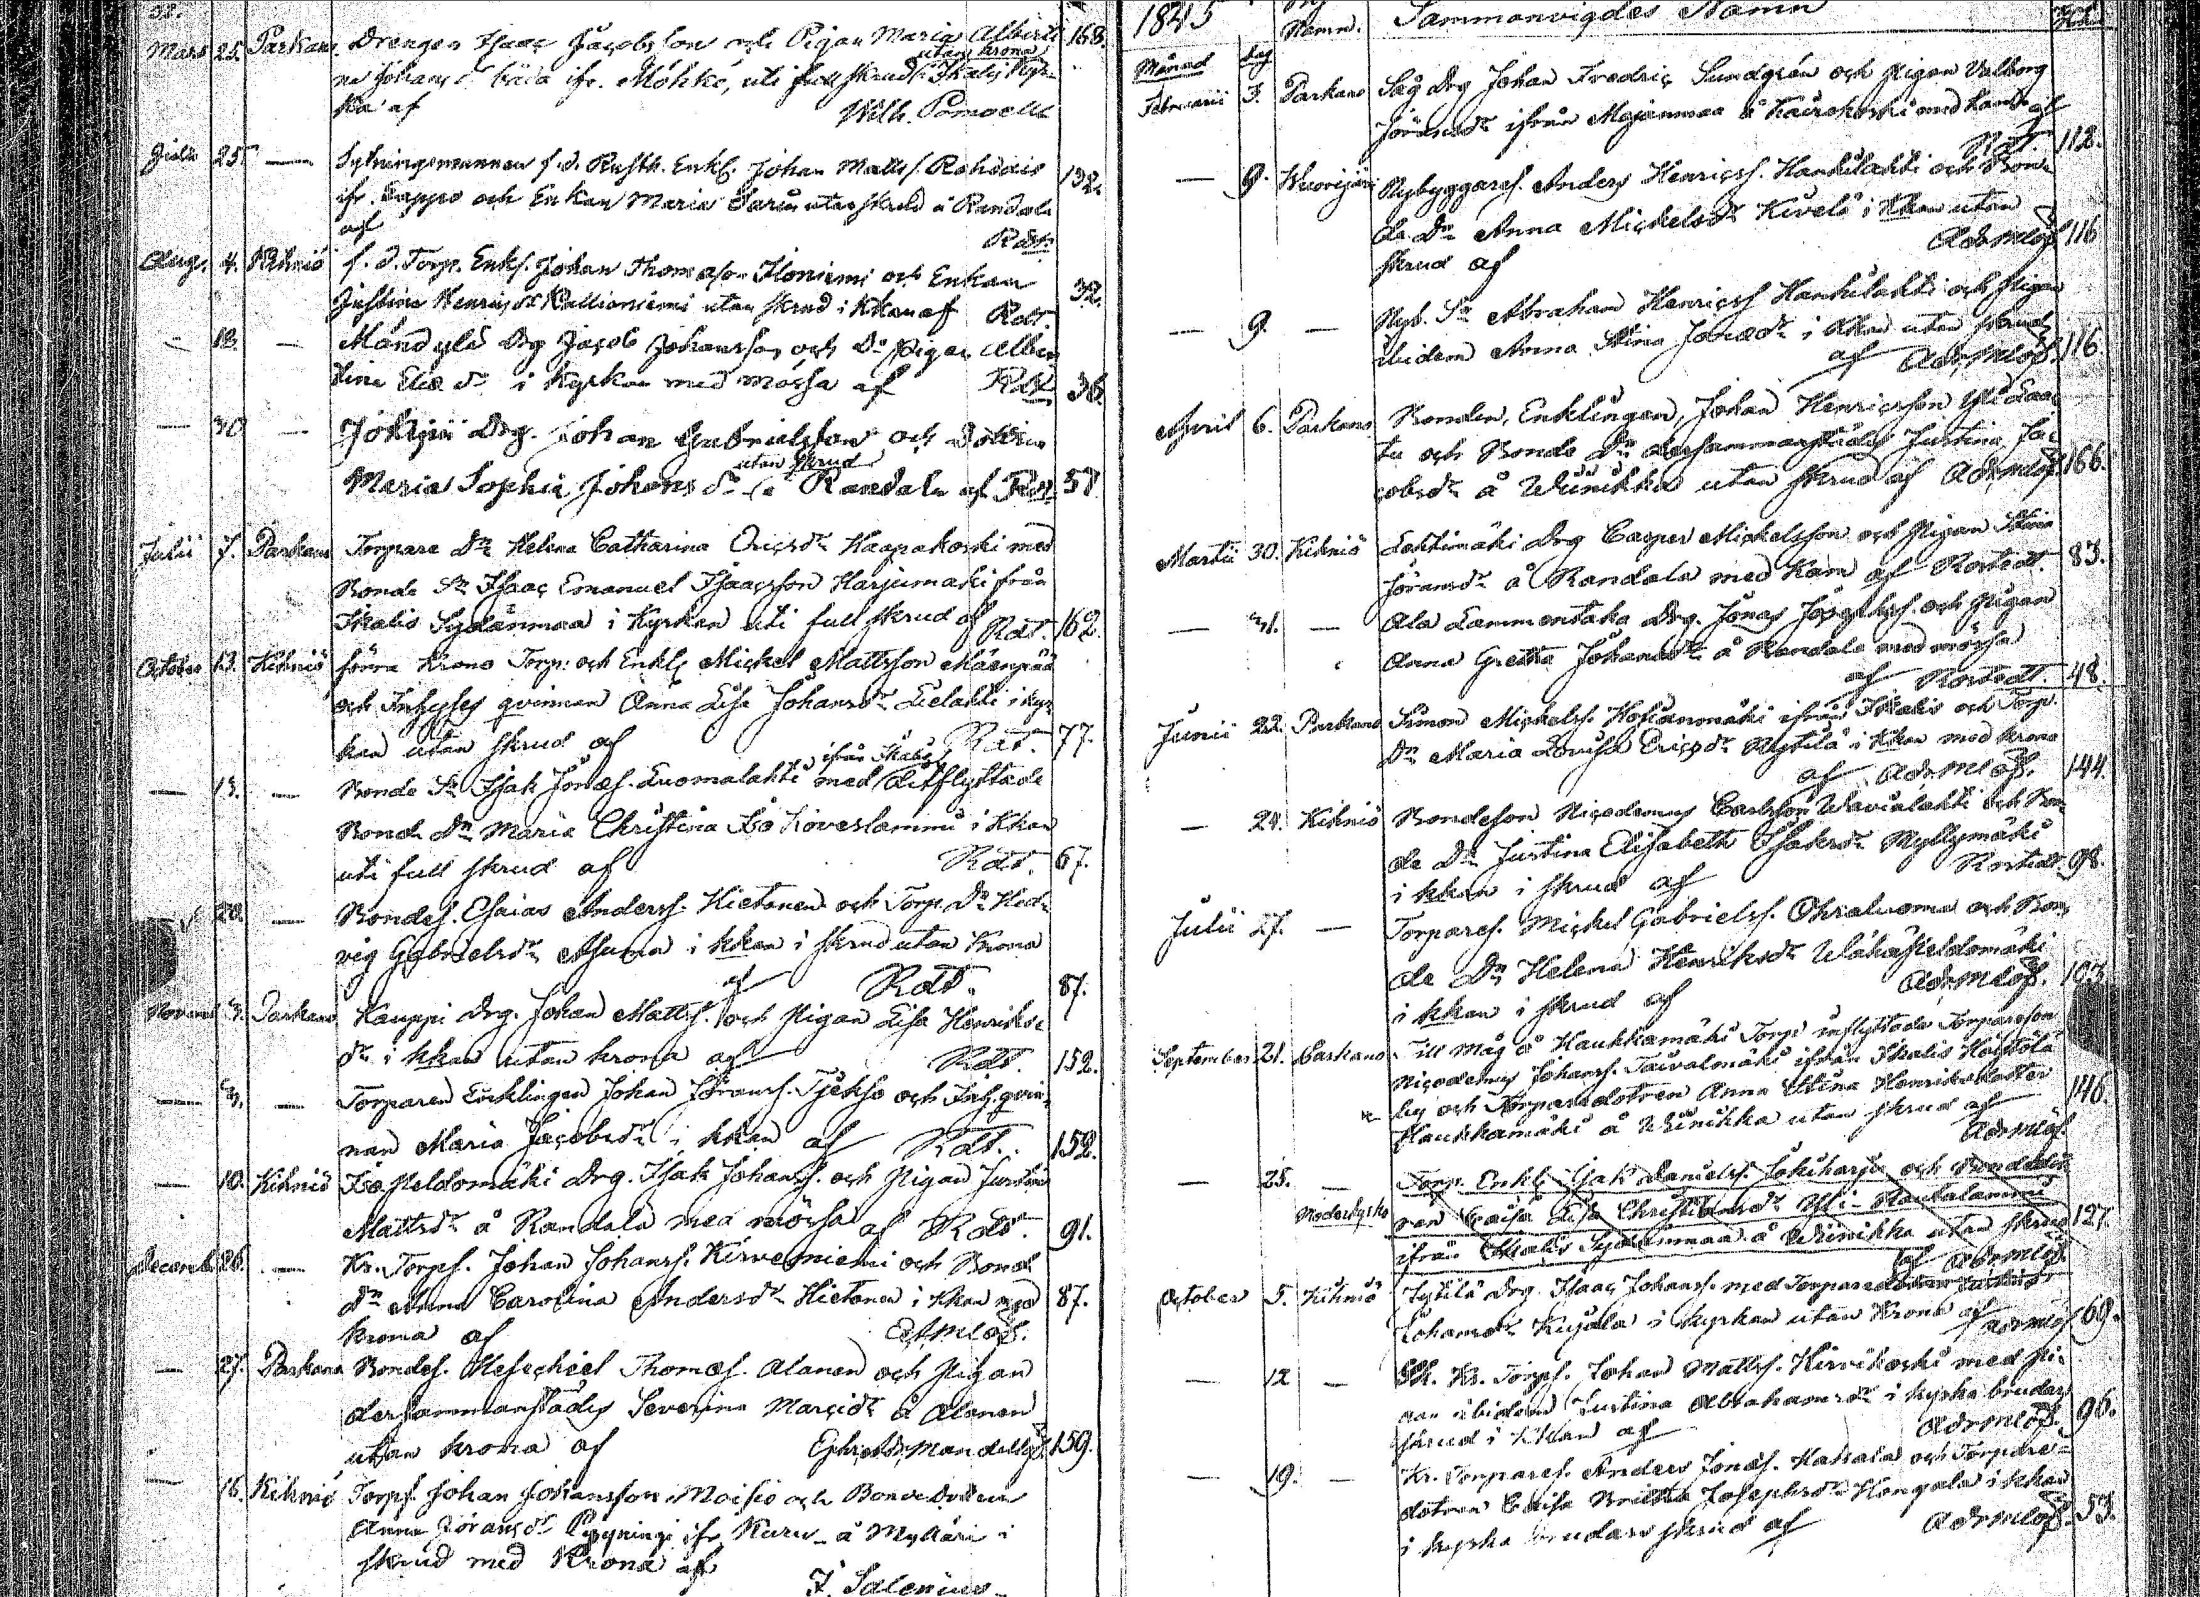 38.
Mars 25. Parkano Drengen Isaac Jacobsson och Pigan Maria Alberti 168.
utan krona
na Johansdr båda ifr. Möhkö, uti full skrud i Ikalis Kyr-
ka af Wilh. Poppius
25. — Sytningsmannen f.d. Rusth. Enkl. Johan Matts s. 132.
ifr. och Enkan Maria utan skrud å Randala
af Rdt.
Aug. 4. Kihniö f.d. Torp. Enkl. Johan Thomasson Honiemi och Enkan
Justina Henricsdr Kallioniemi utan skrud i Kkan af Rdt. 32.
— 18. — Drg Jacob Johansson och Do Pigan Alber
tina dr i Kyrkan med mössa af Rdt. 36.
— 30 — Jokipii Drg. Johan Gabrielsson och
utan skrud
Maria Sophia Johansdr å Randala af Rdt. 58
Julii 7. Parkano Torpare Dn Helena Catharina Ericsdr Haapakoski med
Bonde Sn Isaac Emanuel Isaacsson Harjumäki från
Ikalis Sydänmaa i Kyrkan uti full skrud af Rdt. 162.
October 13. Kihniö förra Krono Torp. och Enkl. Mickel Mattsson Mäenpää
och Inhyses qvinnan Anna Lisa Johansdr Lielahti i kyr-
kan utan skrud af Rdt. 77.
ifrån Ikalis
— 13. — Bonde Sn Isak Jonæs. Luomalahti med utflyttade
Bonde Dn Maria Christina Iso Koveslammi i Kkan
uti full skrud af Rdt. 67.
— 20. — Bondes. Esaias Anderss. Hietanen och Torp. Dr Hed-
vig Gabrielsdr Asuma i kkan i skrud utan Krona
af Rdt. 87.
3. Parkano Kauppi Drg. Johan Mattss. och Pigan Lisa Henriks-
dr i kkan utan krona af Rdt. 152.
— 3. — Torparen Enklingen Johan Jöranss. och Inh. qvin-
nan Maria Jacobsdr i kkan af Rdt. 152.
— 10. Kihniö Iso Peldomäki Drg. Isak Johanss. och Pigan Justina
Mattsdr å Randala med mössa af Rdt. 91.
Decemb. 26. — Kr. Torps. Johan Johanss. Kirveniemi och Bond
Dn Anna Carolina Andersdr Hietanen i kkan med 87.
krona af EAMlöf.
— 27. Parkano Bondes. Hesechiel Thomæs. Alanen och Pigan
dersammanstädes Severina Marcidr å Alanen
utan krona af 159.
— 16. Kihniö Torps. Johan Johansson Moisio och Bondedottren
Anna Jöransdr ifr. Kuru å Mylläri i
skrud med Krona af
F. Salenius
1845 Namn. Sammanvigdes Namn
Månad dag
Februarii 3. Parkano Såg Drg Johan Fredric Sundgrén och Pigan Valborg
Jöransdr ifrån Majanmaa å Kairokoski med Kam af
Rdt. 112.
— 9. Wuorijärvi Nybyggares. Anders Henricss. Hankilahti och Bon-
de Dn Anna Mickelsdr Kivelä i Kkan utan
skrud af AdrMlöf 116
— 9. — Nyb. Sn Abraham Henricss. Hankilahti och Pigan
ibidem Anna Stina Jonædr i Kkan utan skrud
af AdrMlöf. 116.
April 6. Parkano Bonden, Enklingen, Johan Henricsson Yli Laa
tu och Bonde Dn dersammanstädes Justina Ja-
cobsdr å Wiinikka utan skrud af AdrMlöf 166.
Martii 30. Kihniö Lahtimäki Drg Casper Mickelsson och Pigan Stina
Jöransdr å Randala med Kam af Rostedt. 83.
— 31. — Ala Lammentaka Drg. Jonas Josephss. och Pigan
Anna Gretha Johansdr å Randala med mössa
af Rostedt. 48.
Junii 22. Parkano Simon Mickelss. ifrån Ikalis och Torp.
Dn Maria Lovisa Ericsdr Nytilä i Kkan med krona
af AdrMlöf. 144.
— 24. Kihniö Bondeson Nicodemus Carlsson och Bon-
de Dn Justina Elisabeth Isaksdr Myllymäki
i kkan i skrud af Rostedt. 98.
Julii 27. — Torpares. Mickel Gabrielss. Ohraluoma och Bon-
de Dn Helena Henriksdr Wähäpeldomäki
i kkan i skrud af AdrMlöf. 103
September 21. Parkano Till Måg å Haukkamäki Torp inflyttade Torpareson
Nicodemus Johanss. Taivalmäki ifrån Ikalis
by och Torparedotren Anna Stina Henriksdotter 146.
Haukkamäki å Wiinikka utan skrud af
AdrMlöf.
— 25. — Torp. Enkl. Isak Daniels. Jokiharju och
Moderkyrko nan Caisa Lisa Christiansdr Yli- 127.
ifrån Ikalis Sydänmaa å Wiinikka utan skrud
af AdrMlöf.
October 5. Kihniö Sytilä Drg. Isaac Johanss. med Torparedotren Justina
Johansdr Kujala i kyrkan utan Krona af AdrMlöf 69.
— 12 — Sk. Kr. Torps. Johan Mattss. Hirvikoski med Pi-
gan ibidem Justina Abrahamsdr i kyrko brudar
skrud i kkan af AdrMlöf. 96.
— 19. — Kr. Torpares. Anders Jonæs. Hakala och Torpare-
dotren Caisa Brietha Josephsdr Hongala i kkan
i kyrko brudars skrud af AdrMlöf. 53.